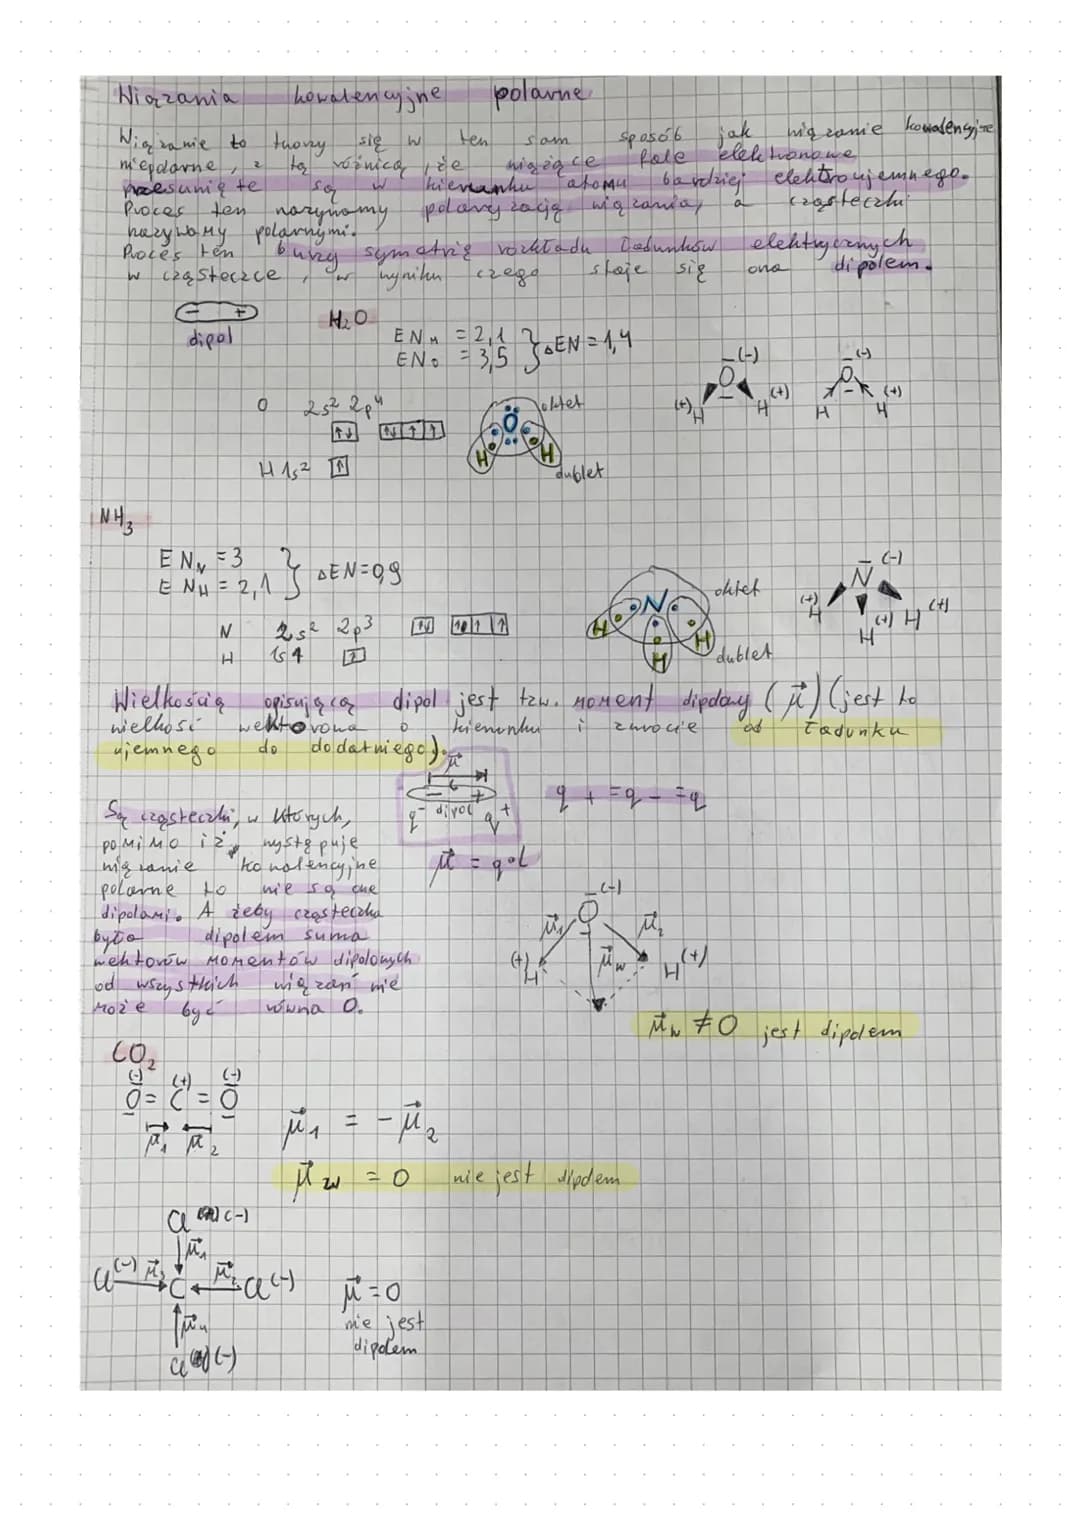 Wiązania kowalencyjne polarne
Wiązanie to tworzy się w ten sam sposób jak wiązanie kowalencyjne
niepolarne, z tą różnicą, że wiążące Pole elektronowe
przesunięte są w kierunku atomu bardziej elektroujemnego.
Proces ten nazywamy polaryzacją wiązania, a cząsteczki
nazywamy polarnymi.
Proces ten burzy symetrię rozkładu ładunków elektrycznych
w cząsteczce, w wyniku czego staje się ona dipolem.
- +
dipol
H₂O
EN H = 2,1
EN O = 3,5
} ΔEN = 1,4
O 2s² 2p⁴
↑↓ ↑↓ ↑ ↑
H 1s² ↑
oktet
O
H H
dublet
(-)
O
(+) H H (+)
(-)
O
H H (+)
NH₃
EN N = 3
EN H = 2,1
} ΔEN = 0,9
N 2s² 2p³ ↑↓ ↑ ↑ ↑
H 1s1 ↑
oktet
N
H H H
dublet
(-)
N
(+) H H (+) H (+)
Wielkością opisującą dipol jest tzw. moment dipolowy (μ⃗) (jest to
wielkość wektorowa o kierunku i zwrocie od ładunku
ujemnego do dodatniego).
μ⃗
l
- +
q⁻ dipol q⁺
q + = q - = q
μ⃗ = q • l
Są cząsteczki, w których,
pomimo iż występuje
wiązanie kowalencyjne
polarne to nie są one
dipolami. A żeby cząsteczka
była dipolem suma
wektorów momentów dipolowych
od wszystkich wiązań nie
może być równa 0.
(-)
O
μ⃗₁ μ⃗₂
(+) H μ⃗w H (+)
μ⃗w ≠ 0 jest dipolem
CO₂
(-) (+) (-)
O = C = O
μ⃗₁ μ⃗₂
μ⃗₁ = - μ⃗₂
μ⃗w = 0 nie jest dipolem
Cl (-)
μ⃗₁
Cl (-) μ⃗₃ C μ⃗₂ Cl (-)
μ⃗₄
Cl (-)
μ⃗ = 0
nie jest
dipolem